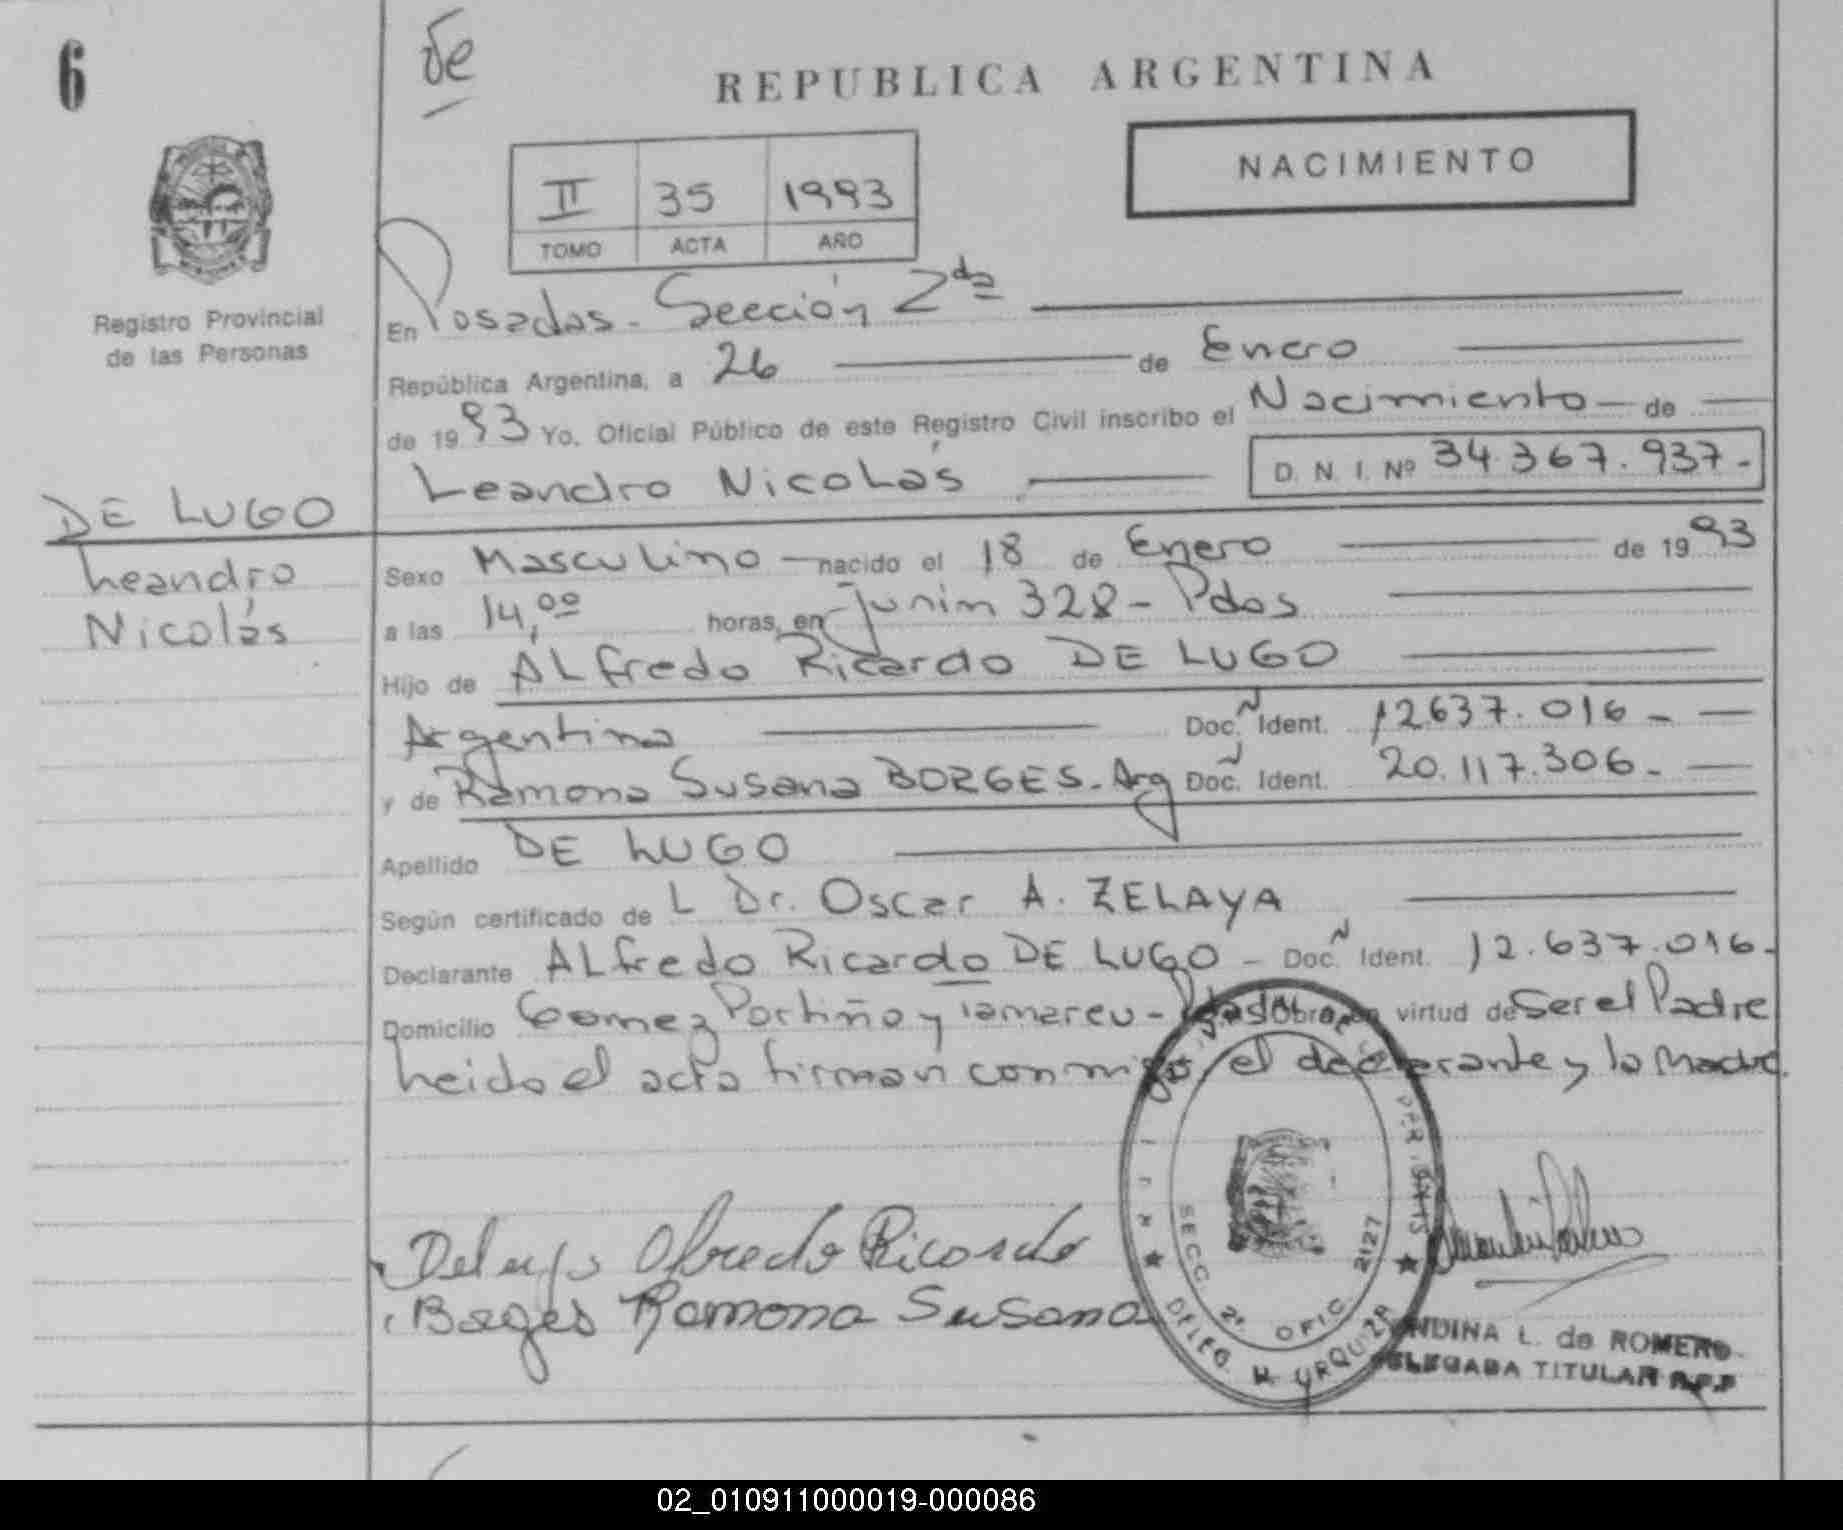 6
de
REPUBLICA ARGENTINA
NACIMIENTO
II 35 1993
TOMO ACTA AÑO
Registro Provincial
de las Personas
En Posadas - Sección 2da
República Argentina, a 26 de Enero
de 1993 Yo, Oficial Público de este Registro Civil inscribo el Nacimiento - de
Leandro Nicolás D. N. I. Nº 34.367.937.-
DE LUGO
Leandro
Nicolás
Sexo Masculino - nacido el 18 de Enero de 1993
a las 14,00 horas, en Junin 328 - Pdas
Hijo de ALfredo Ricardo DE LUGO
Argentina Doc. Ident. 12637.016 -
y de Ramona Susana BORGES - Arg Doc. Ident. 20.117.306 -
Apellido DE LUGO
Según certificado de L Dr. Oscar A. ZELAYA
Declarante ALfredo Ricardo DE LUGO - Doc. Ident. 12.637.016-
Domicilio Gomez Portiño y Tamareu - Pdas Obra en virtud de Ser el Padre
Leido el acta firman conmigo el declarante y la Madre.
Delugo Alfredo Ricardo
Borges Ramona Susana
SECC. 2ª OFIC. 2127
DELEG. R. URQUIZA
NDINA L. de ROMERO
DELEGADA TITULAR R.P.P
02_010911000019-000086